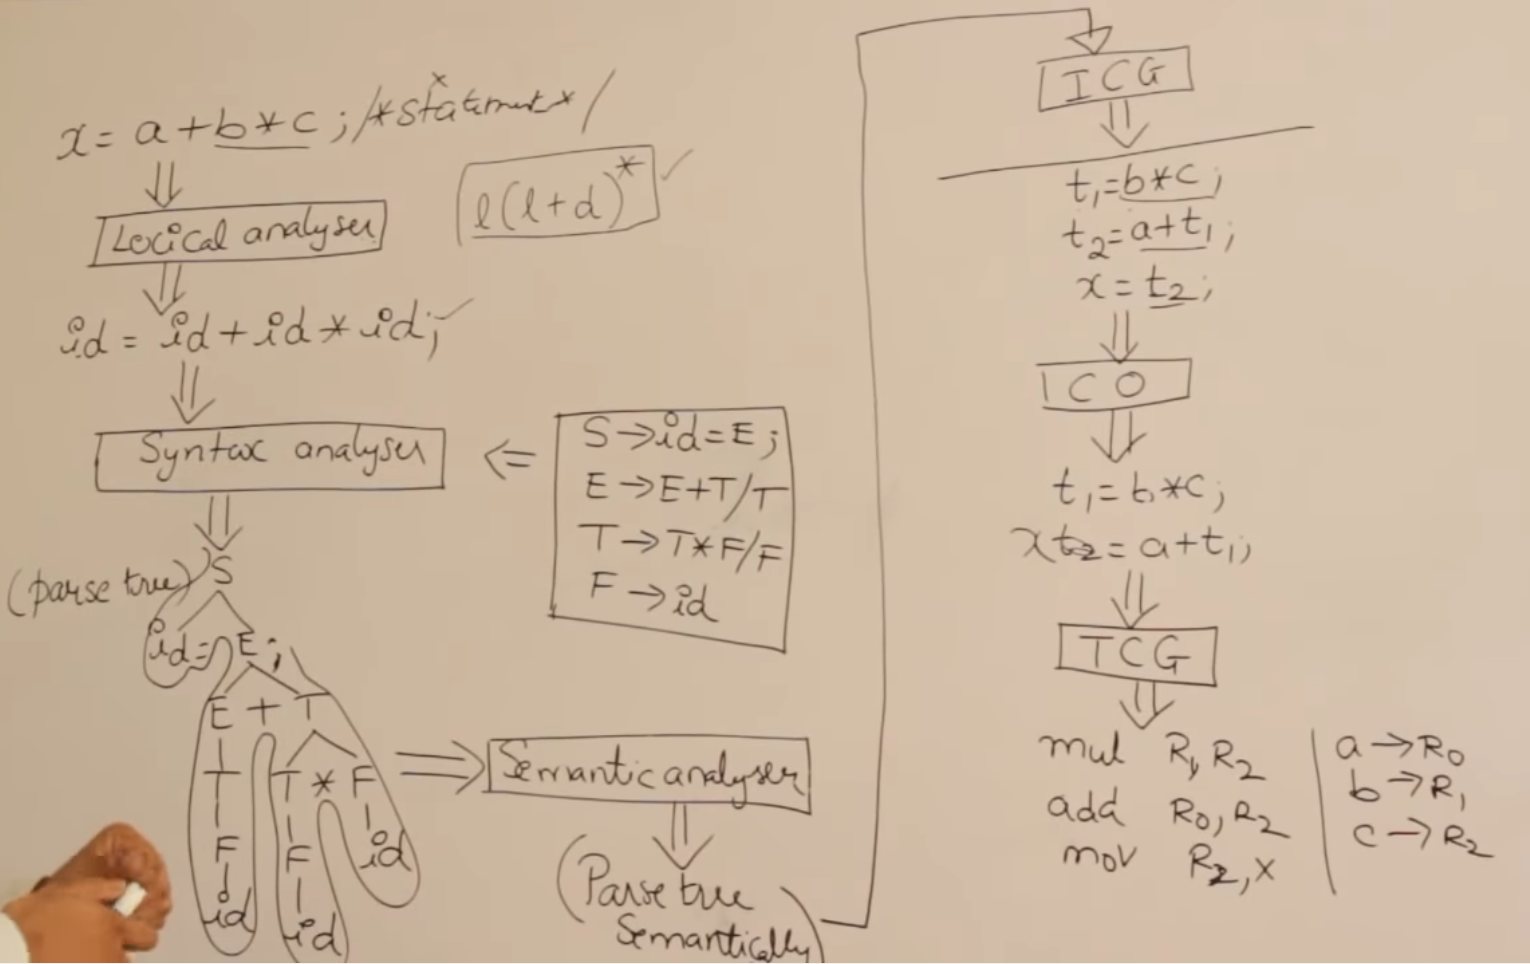 x = a + b * c ; /* statement */
l(l+d)*
Lexical analyser
id = id + id * id;
Syntax analyser
S → id = E ;
E → E+T/T
T → T*F/F
F → id
(parse tree) S
id = E ;
E + T
T T * F
F F id
id id
Semantic analyser
(Parse tree
Semantically
ICG
t1 = b*c;
t2 = a+t1;
x = t2;
CO
t1 = b*c;
x t2 = a+t1;
TCG
mul R1, R2
add R0, R2
mov R2, x
a → R0
b → R1
c → R2